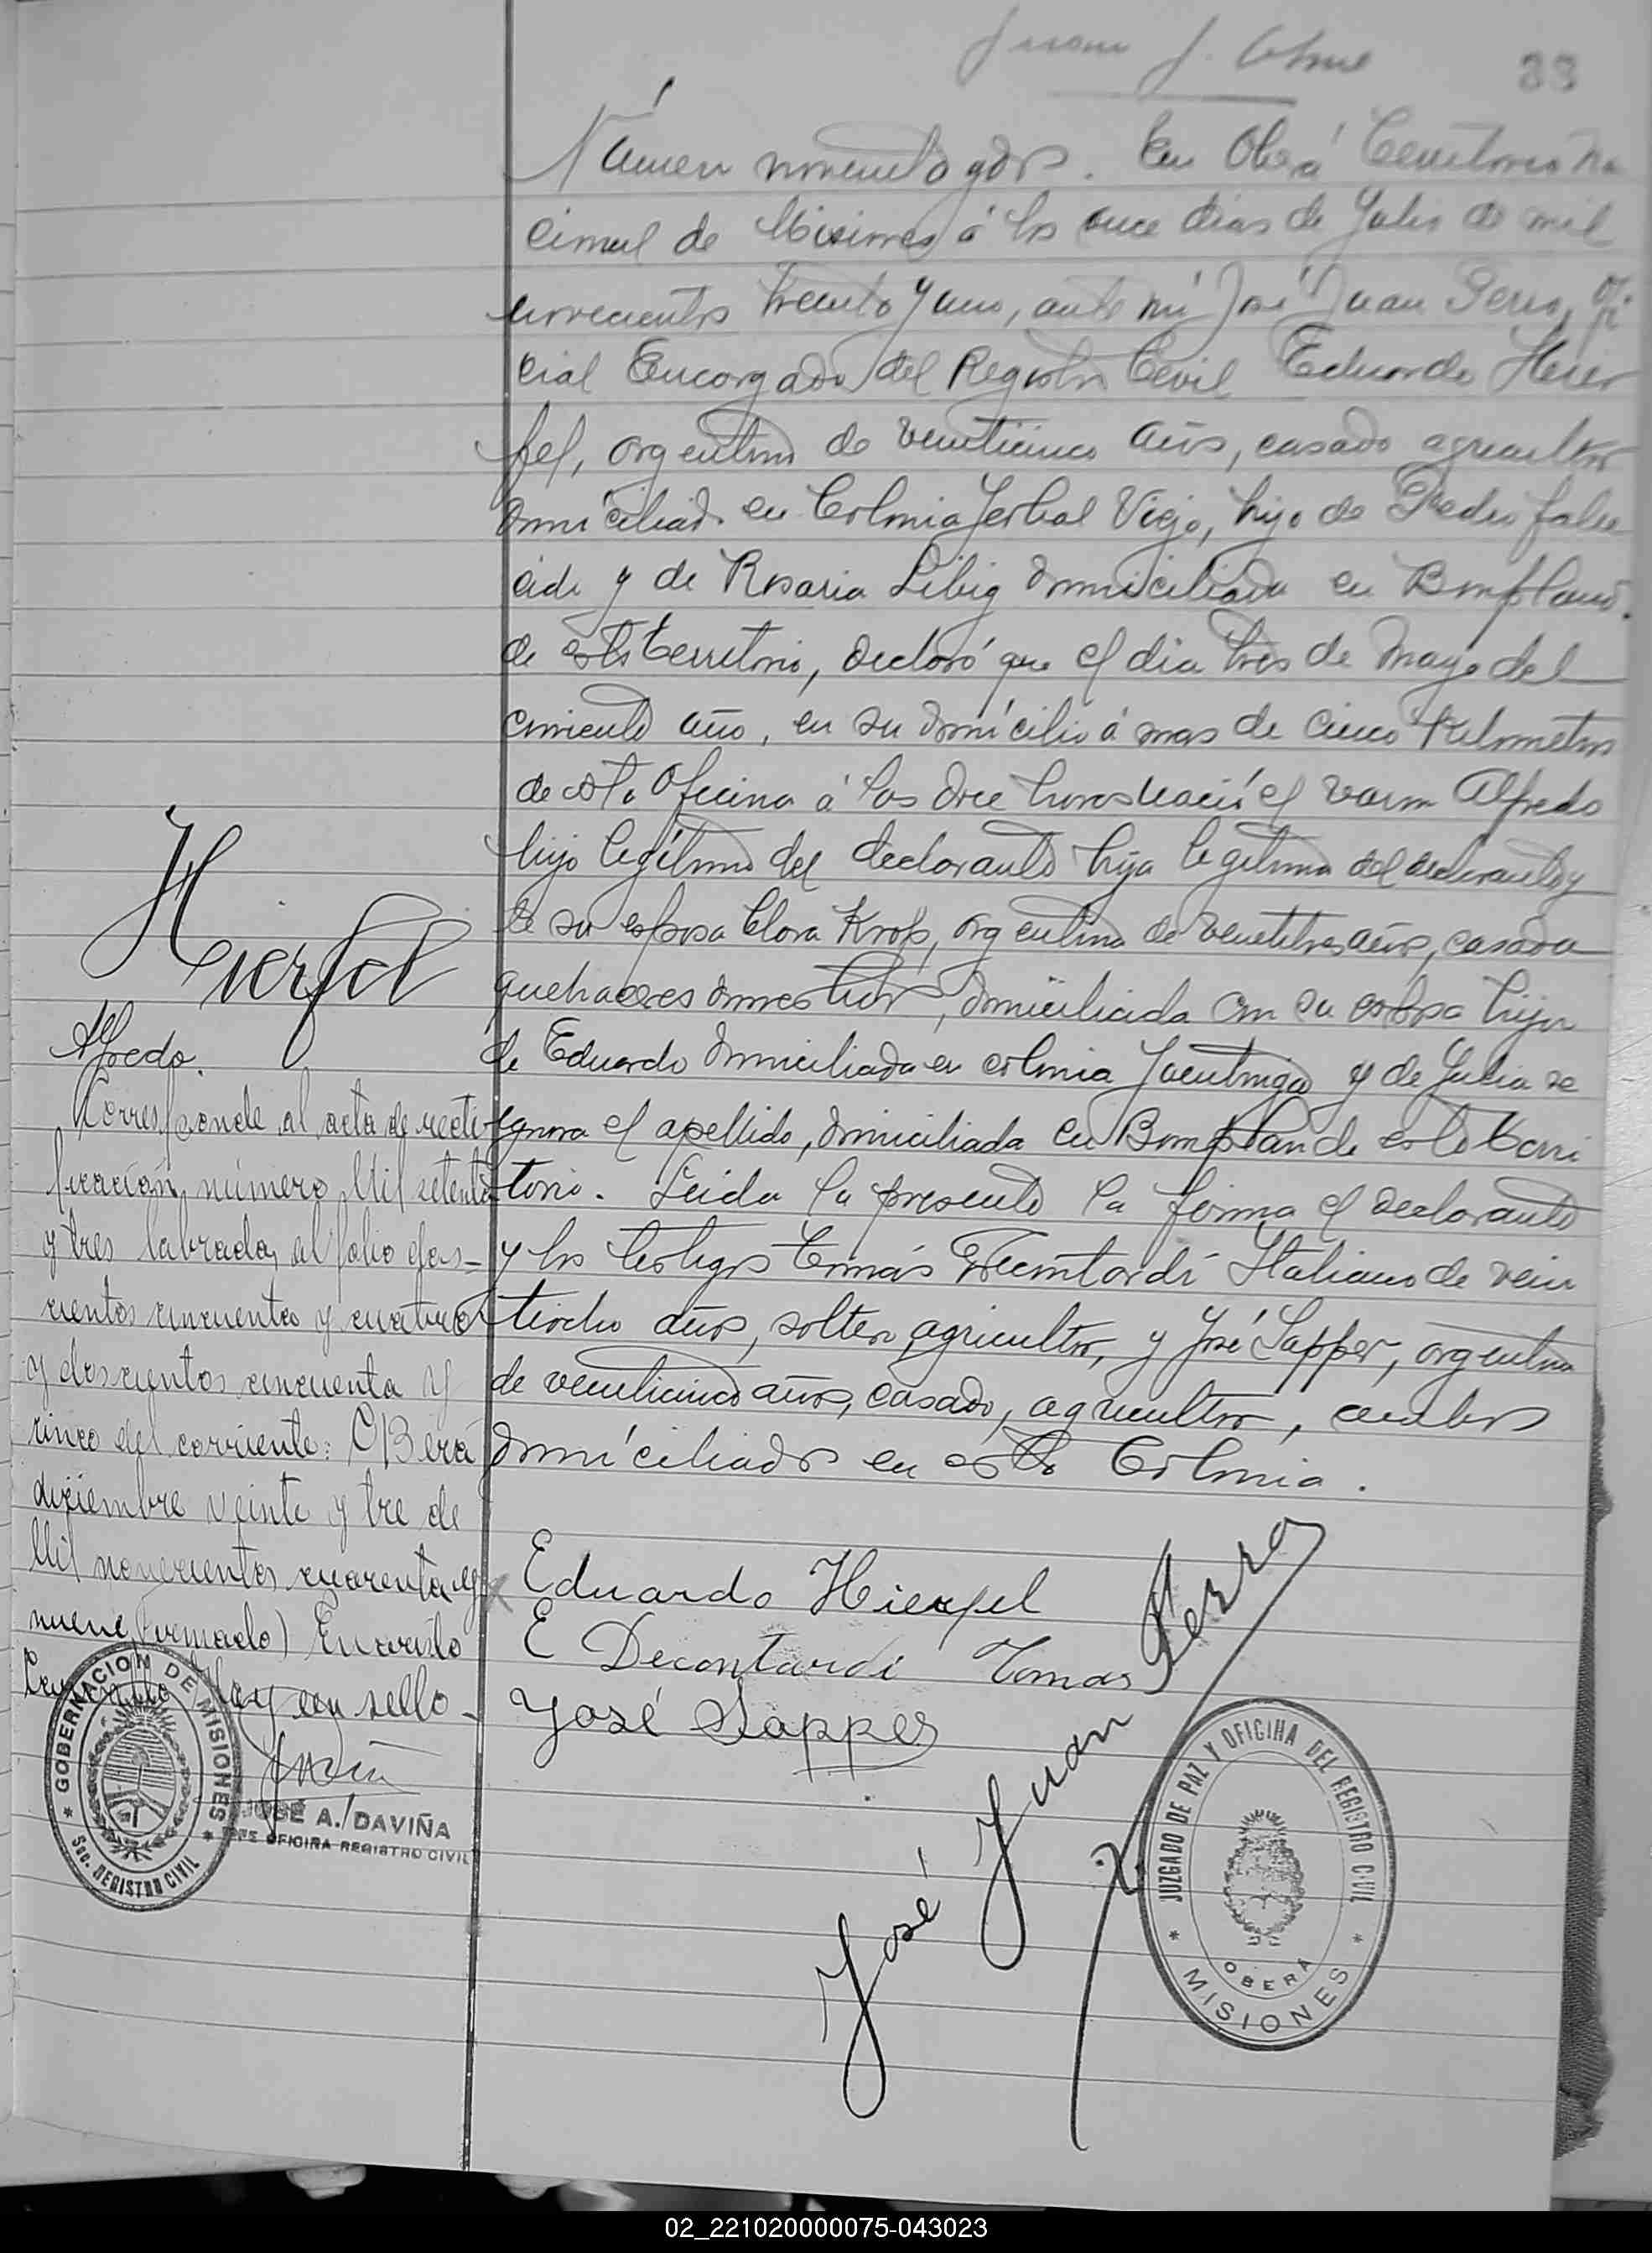 33
Número noventa y dos. En Oberá Territorio Na
cional de Misiones á los once dias de Julio de mil
novecientos treinta y uno, ante mí José Juan Perro, ofi
cial Encargado del Registro Civil Eduardo Hierr
fel, argentino de veinticinco años, casado agricultor
domiciliado en Colonia Yerbal Viejo, hijo de Pedro falle
cido y de Rosaria Libig domiciliada en Bompland.
de este Territorio, declaró que el dia tres de Mayo del
corriente año, en su domicilio á mas de cinco Kilometros
de esta Oficina á las doce horas nació el varon Alfredo
hijo legítimo del declarante hija legitima del declarante y
de su esposa Clara Krop, argentina de veintitres años, casada
quehaceres domesticos, domiciliada con su esposo hija
de Eduardo domiciliada en colonia y de Julia se
ignora el apellido, domiciliada en Bompland de este Terri
torio. Leida la presente la firma el declarante
y los testigos Tomás Italiano de vein
tiocho años, soltero, agricultor, y José Sapper, argentino
de veinticinco años, casado, agricultor, ambos
domiciliados en esta Colonia.
Hierfel
Alfredo.
Corresponde al acta de recti
ficación número Mil setenta
y tres labrada al folio dos=
cientos cincuenta y cuatro
y doscientos cincuenta y
cinco del corriente: OBerá
diciembre veinte y tre de
Mil novecientos cuarenta y
nueve (firmado)
Hay un sello -
GOBERNACION DE MISIONES
Sec. REGISTRO CIVIL
JOSÉ A. DAVIÑA
JEFE OFICINA REGISTRO CIVIL
Eduardo Hierfel
E Decontardi Tomas
José Sapper
José Juan Perro
JUZGADO DE PAZ Y OFICINA DEL REGISTRO CIVIL
OBERA
MISIONES
02_221020000075-043023